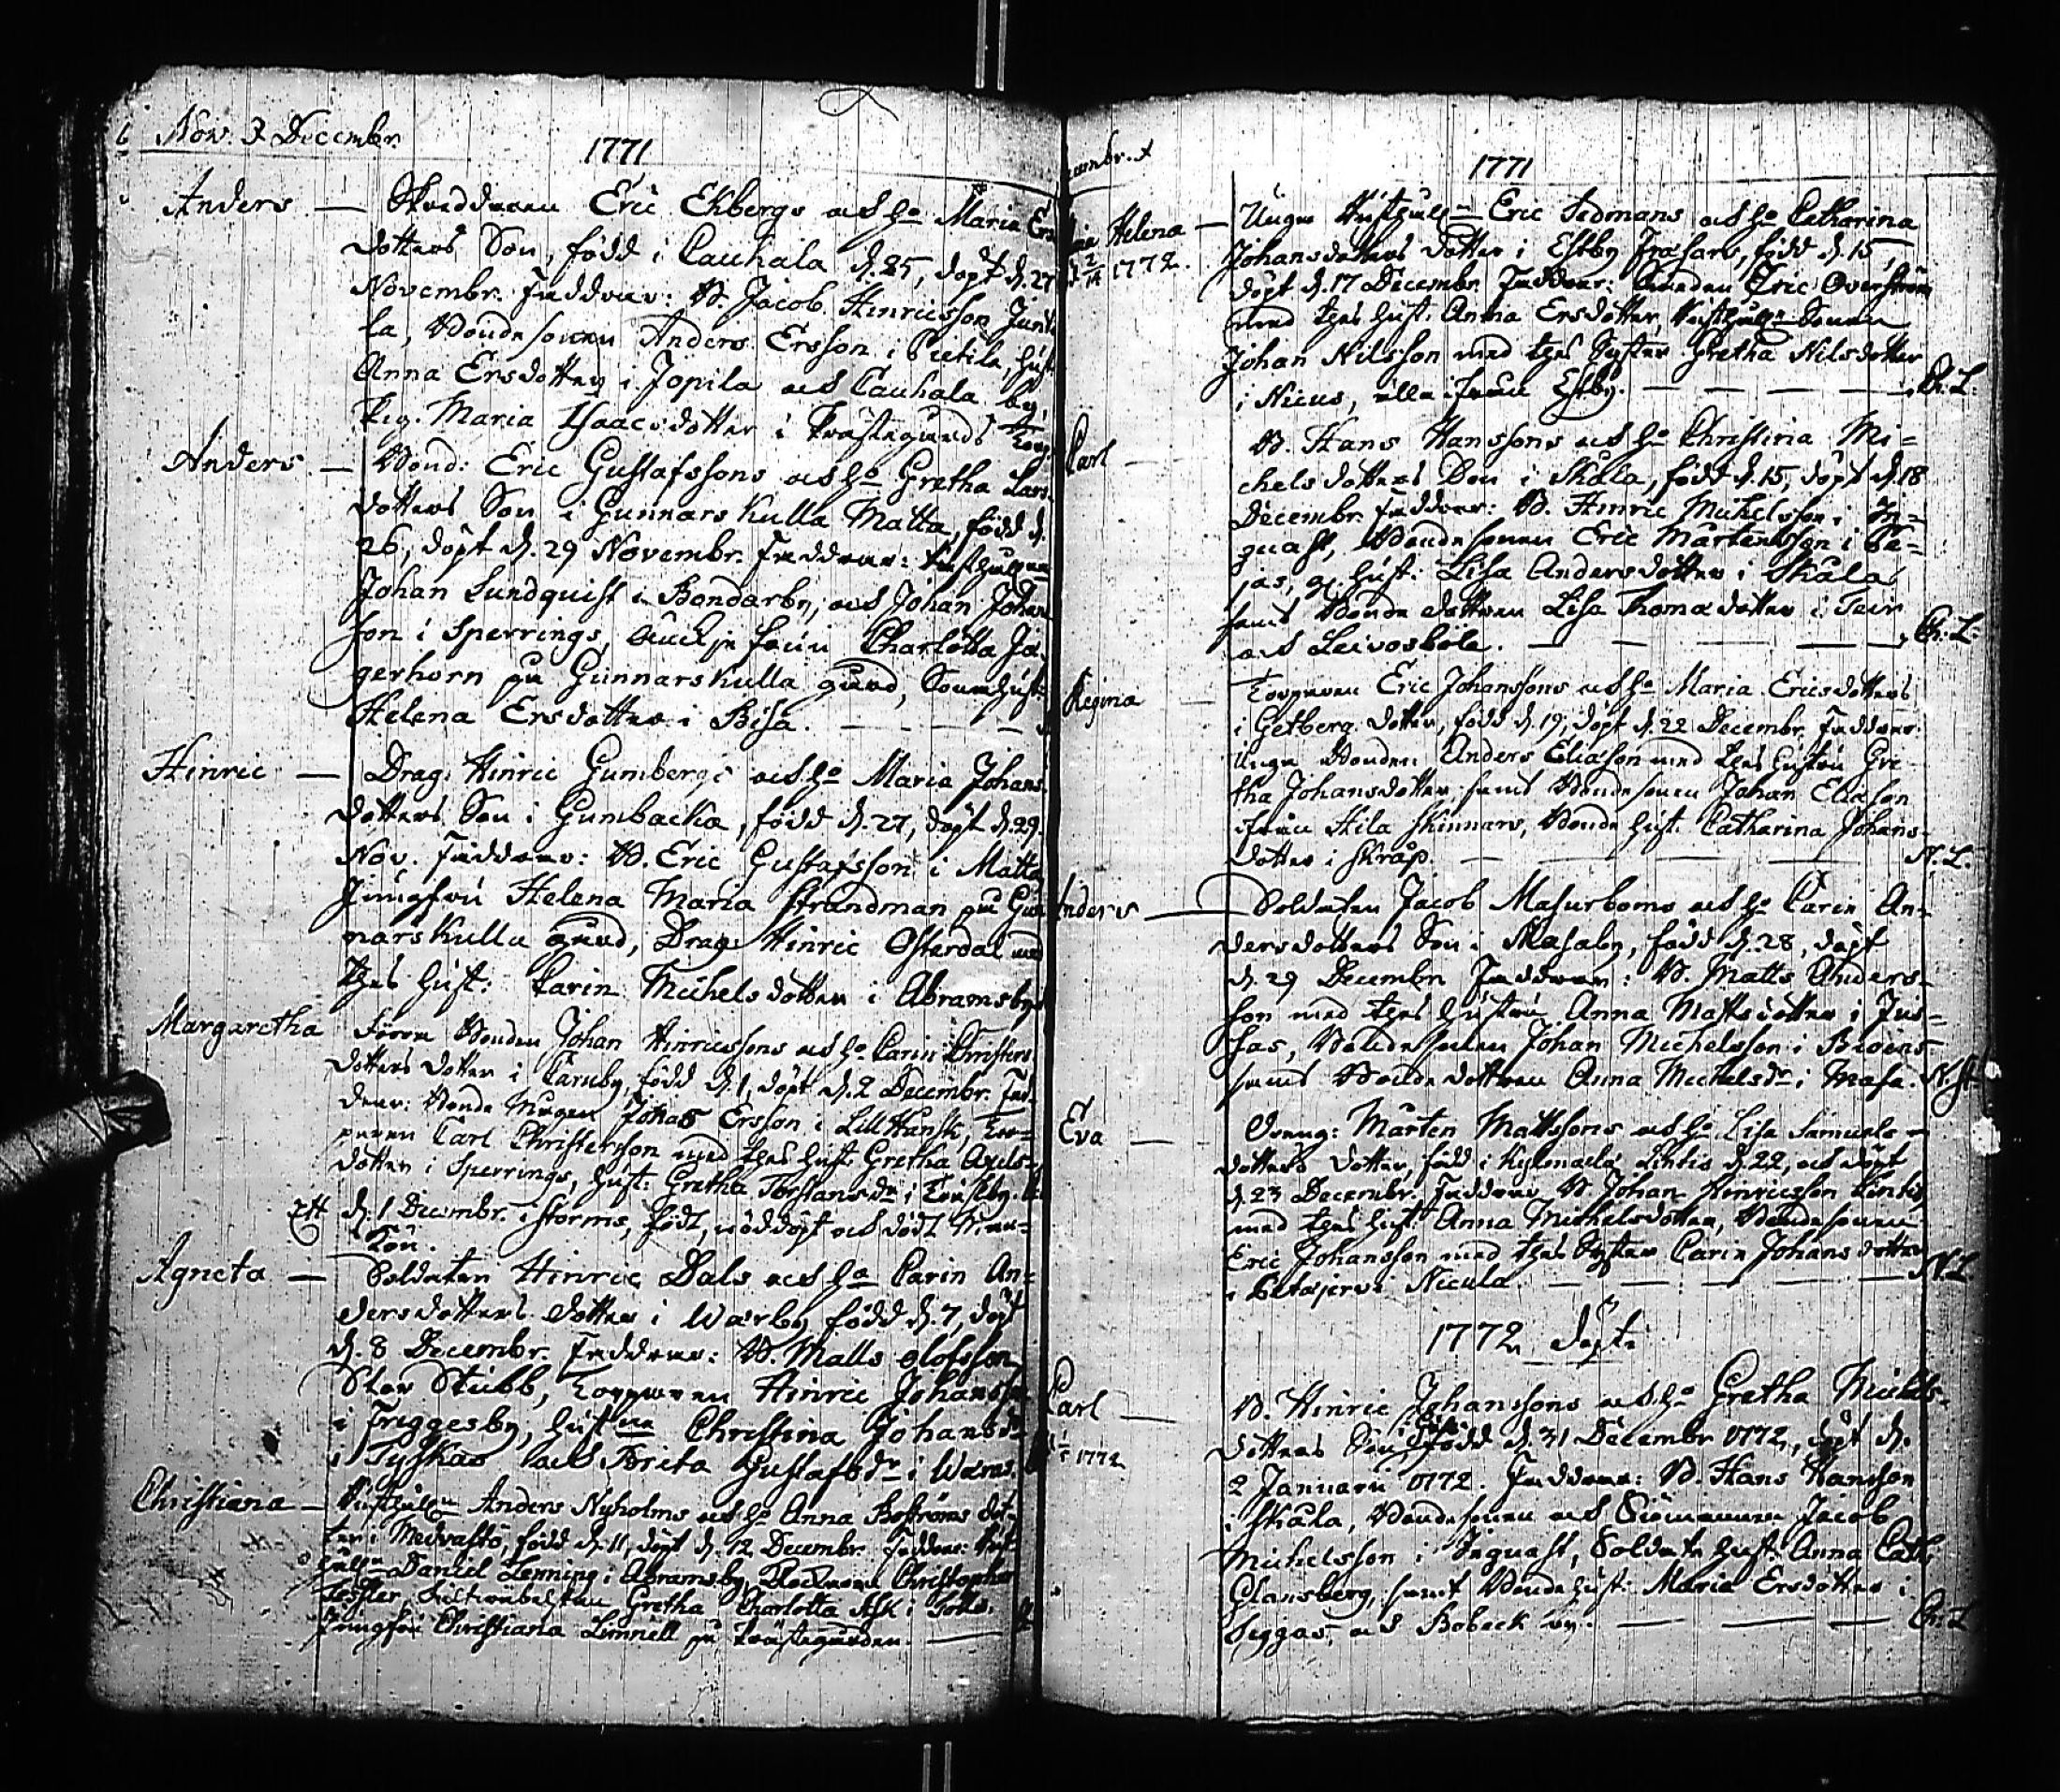 Nov. & Decembr.
1771
Anders — Skreddaren Eric Ekbergs och h:o Maria Ers
dotters Son, född i Cauhala d. 25, döpt d. 27
Novembr. Faddrar: B. Jacob Hinricsson Junti
la, Bondesonen Anders Ersson i Pietila, hust.
Anna Ersdotter i Jopila och Cauhala by,
pig. Maria Isaacsdotter i Prästegårds Torp.
Anders — Bond: Eric Gustafssons och h:o Gretha Lars
dotters Son i Gunnarskulla Matta, född d.
26, döpt d. 29 Novembr. Faddrar:
Johan Lundquist i Bondarby, och Johan Johan
son i Sperrings, Charlotta Jä
gerhorn på Gunnarskulla gård,
Helena Ersdotter i Bisa.
Hinric — Drag. Hinric Gumbergs och h:o Maria Johans
dotters Son i Gumbacka, född d. 27, döpt d. 29
Nov. Faddrar: B. Eric Gustafsson i Matta
Jungfru Helena Maria Strandman på Gun
narskulla gård, Drag. Hinric Osterdal med
thes hust: Carin Michelsdotter i Abramsby
Margaretha Förra Bonden Johan Hinricssons och h:o Carin Christers
dotters dotter i Caruby, född d. 1, döpt d. 2 Decembr. Fad
drar: Bonde Mågen Johan Ersson i Lill Hansk, Tor=
paren Carl Christersson med thes hust. Gretha Axels
dotter i Sperrings, hust: Gretha Torstansdr i
Ett d. 1 Decembr. i Storms, födt, nöddöpt och dödt Man=
kön.
Agneta — Soldaten Hinric Dals och h:o Carin An=
dersdotters dotter i Warby, född d. 7, döpt
d. 8 Decembr. Faddrar: B. Matts Olofsson
Stor Stubb, Torparen Hinric Johansson
i Friggesby, hust Christina Johansdr
i Tyskas och Brita Gustafsdr i
Christiana — Anders Nyholms och h:o Anna Boströms dot=
ter i Medvastö, född d. 11, döpt d. 12 Decembr. Faddrar:
Daniel Lenning i Abramsby, Klockaren Christopher
Tessler, Gretha Charlotta Ask i
Jungfru Christiana Limnell på Prästegården.
1771
Helena —
1772.
Unga Eric Sedmans och h:o Catharina
Johansdotters dotter i Estby Frasars, född d. 15,
döpt d. 17 Decembr. Faddrar: Smeden Eric Overström
med thes hust. Anna Ersdotter,
Johan Nilsson med thes Syster Gretha Nilsdotter
i Nicus, alla ifrån Estby. — Ch. L.
Carl — B. Hans Hanssons och h:o Christina Mi=
chelsdotters Son i Skåla, född d. 15, döpt d. 18
Decembr. Faddrar: B. Hinric Michelsson i In=
gvast, Bondesonen Eric Mårtensson i Pe=
jas, g. hust: Lisa Andersdotter i Skåla
samt Bondedottren Lisa Thomadotter i Teir
och Leivosböle. — Ch. L.
Regina Torparen Eric Johanssons och h:o Maria Ericsdotters
i Getberg dotter, född d. 19, döpt d. 22 Decembr. Faddrar:
Unga Bonden Anders Eliason med thes hustru Gre
tha Johansdotter, samt Bondesonen Johan Eliason
ifrån Hila Skinnars, Bonde hust. Catharina Johans=
dotter i Skråp. — N. L.
Anders — Soldaten Jacob Masurboms och h:o Carin An=
dersdotters Son i Masaby, född d. 28, döpt
d. 29 Decembr. Faddrar: B. Matts Anders=
son med thes hustru Anna Mattsdotter i Jus=
sas, Bondesonen Johan Michelsson i
samt Bondedottren Anna Michelsdr i Masa. N. L.
Eva — Dreng: Mårten Mattssons och h:o Lisa Samuels=
dotters dotter, född i Kylmaelä Lintis d. 22, och döpt
d. 23 Decembr. Faddrar B. Johan Hinricsson Lintis
med thes hust. Anna Michelsdotter, Bondesonen
Eric Johansson med thes Syster Carin Johansdotter
i Petajervi Nicula — N. L.
1772 döpte
Carl —
1772
B. Hinric Johanssons och h:o Gretha Michels=
dotters Son, född d. 31 Decembr 1772, döpt d.
2 Januarii 1772. Faddrar: B. Hans Hansson
i Skåla, Bondesonen och Jacob
Michelsson i Ingvast, Soldate hust. Anna Cath.
Glansberg, samt Bonde hust: Maria Ersdotter i
Siggas, och Bobeck by. — Ch. L.